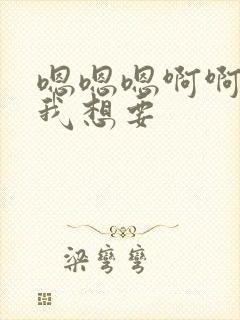 嗯嗯嗯啊啊
我想要
梁弯弯